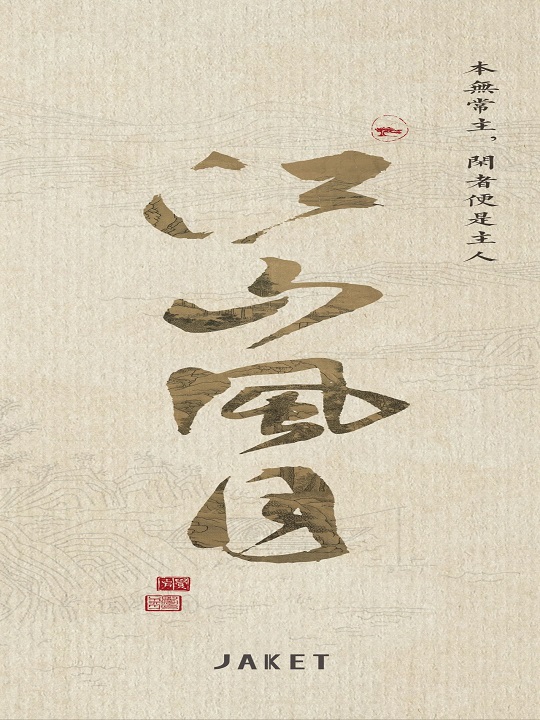 江山風月
本無常主，閑者便是主人
JAKET